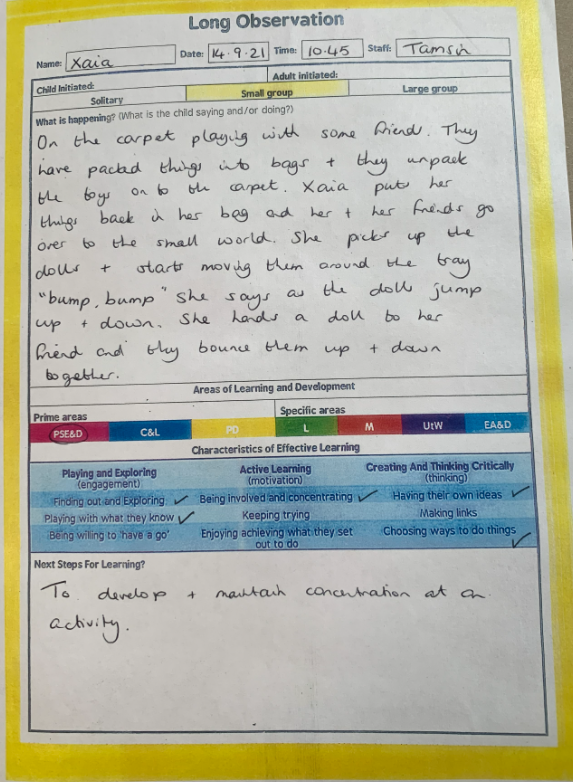 Long Observation
Name: Xaia Date: 14.9.21 Time: 10.45 Staff: Tamsin
Child Initiated: Adult initiated:
Solitary Small group Large group
What is happening? (What is the child saying and/or doing?)
On the carpet playing with some friend. They
have packed things into bags + they unpack
the toys on to the carpet. Xaia puts her
things back in her bag and her + her friends go
over to the small world. She picks up the
dolls + starts moving them around the tray
"bump, bump" she says as the dolls jump
up + down. She hands a doll to her
friend and they bounce them up + down
together.
Areas of Learning and Development
Prime areas Specific areas
PSE&D C&L PD L M UtW EA&D
Characteristics of Effective Learning
Playing and Exploring Active Learning Creating And Thinking Critically
(engagement) (motivation) (thinking)
Finding out and Exploring ✓ Being involved and concentrating ✓ Having their own ideas ✓
Playing with what they know ✓ Keeping trying Making links
Being willing to 'have a go' Enjoying achieving what they set Choosing ways to do things ✓
out to do
Next Steps For Learning?
To develop + maintain concentration at an
activity.